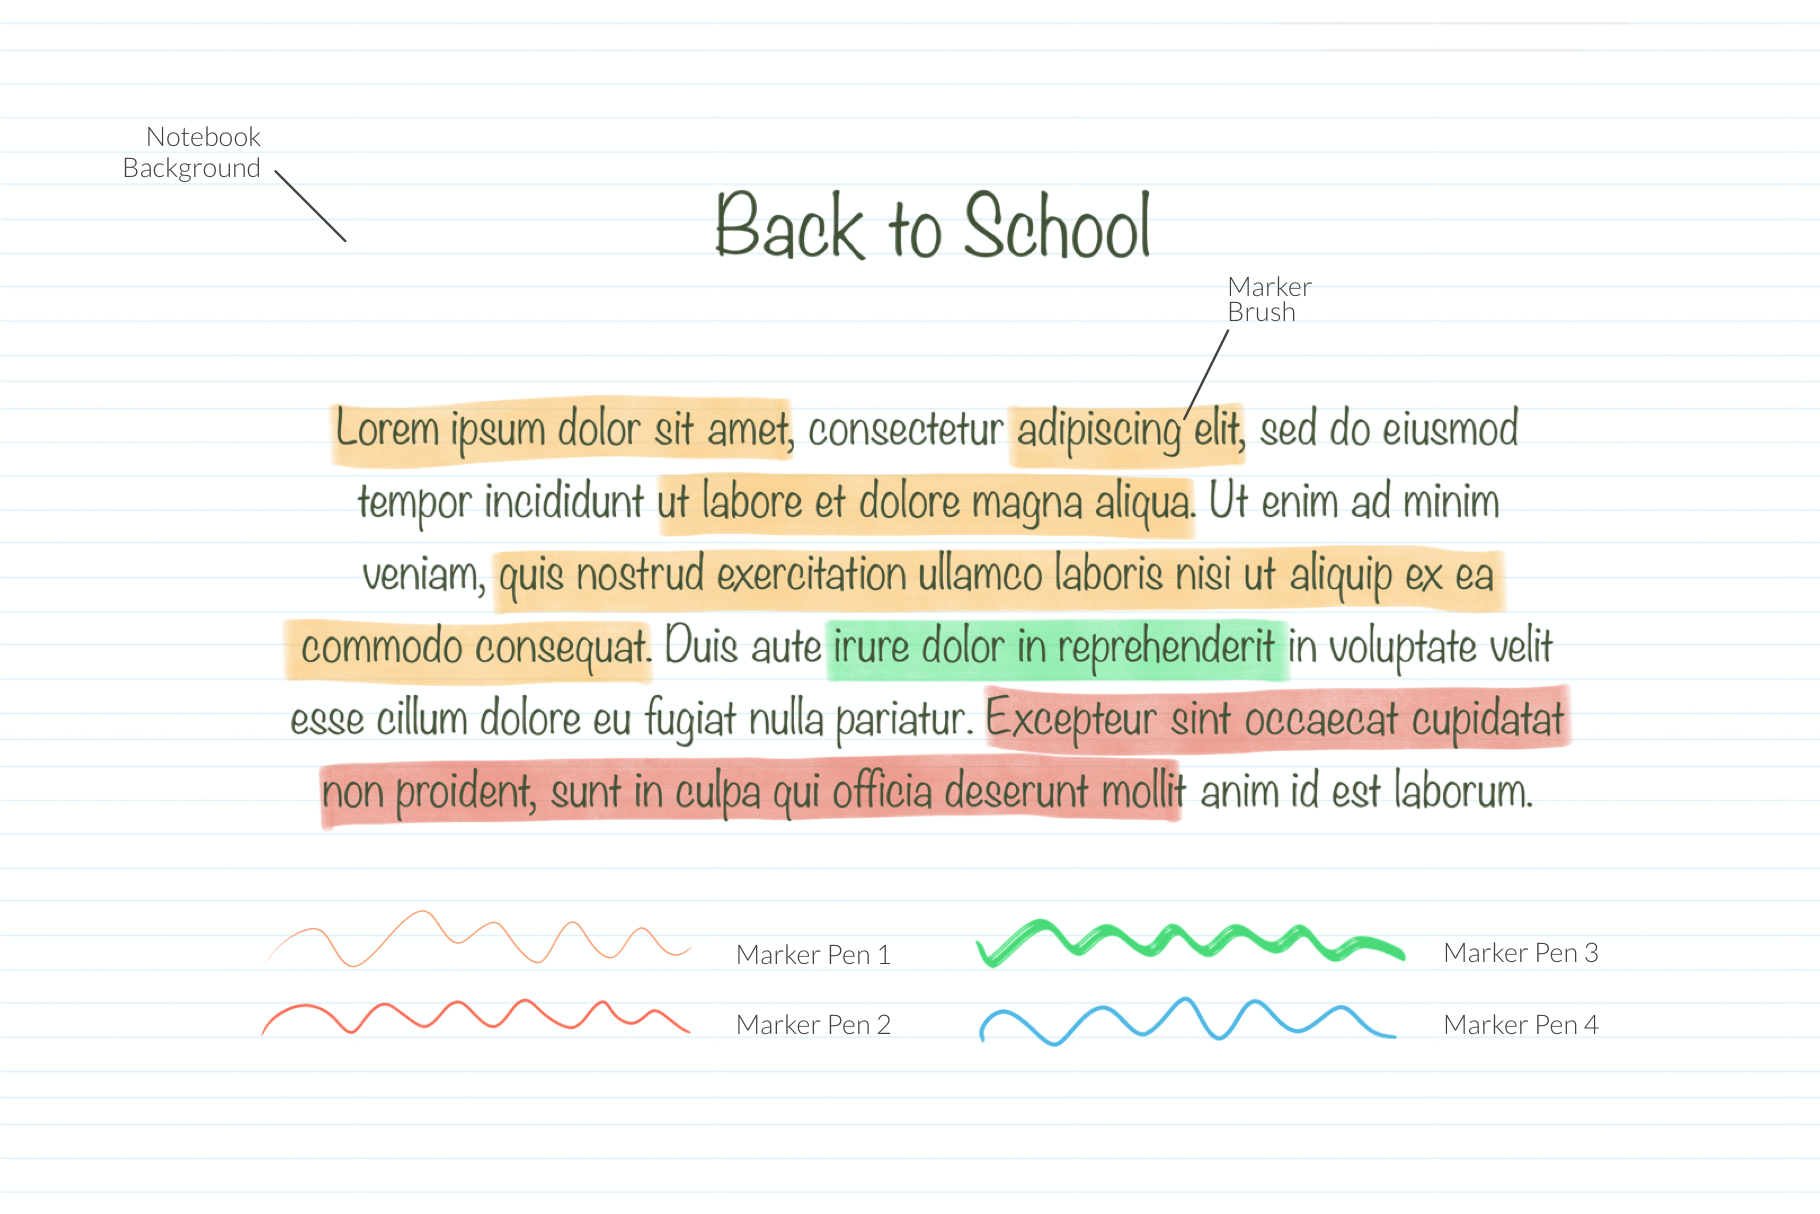 Notebook
Background
Back to School
Marker
Brush
Lorem ipsum dolor sit amet, consectetur adipiscing elit, sed do eiusmod
tempor incididunt ut labore et dolore magna aliqua. Ut enim ad minim
veniam, quis nostrud exercitation ullamco laboris nisi ut aliquip ex ea
commodo consequat. Duis aute irure dolor in reprehenderit in voluptate velit
esse cillum dolore eu fugiat nulla pariatur. Excepteur sint occaecat cupidatat
non proident, sunt in culpa qui officia deserunt mollit anim id est laborum.
Marker Pen 1
Marker Pen 3
Marker Pen 2
Marker Pen 4